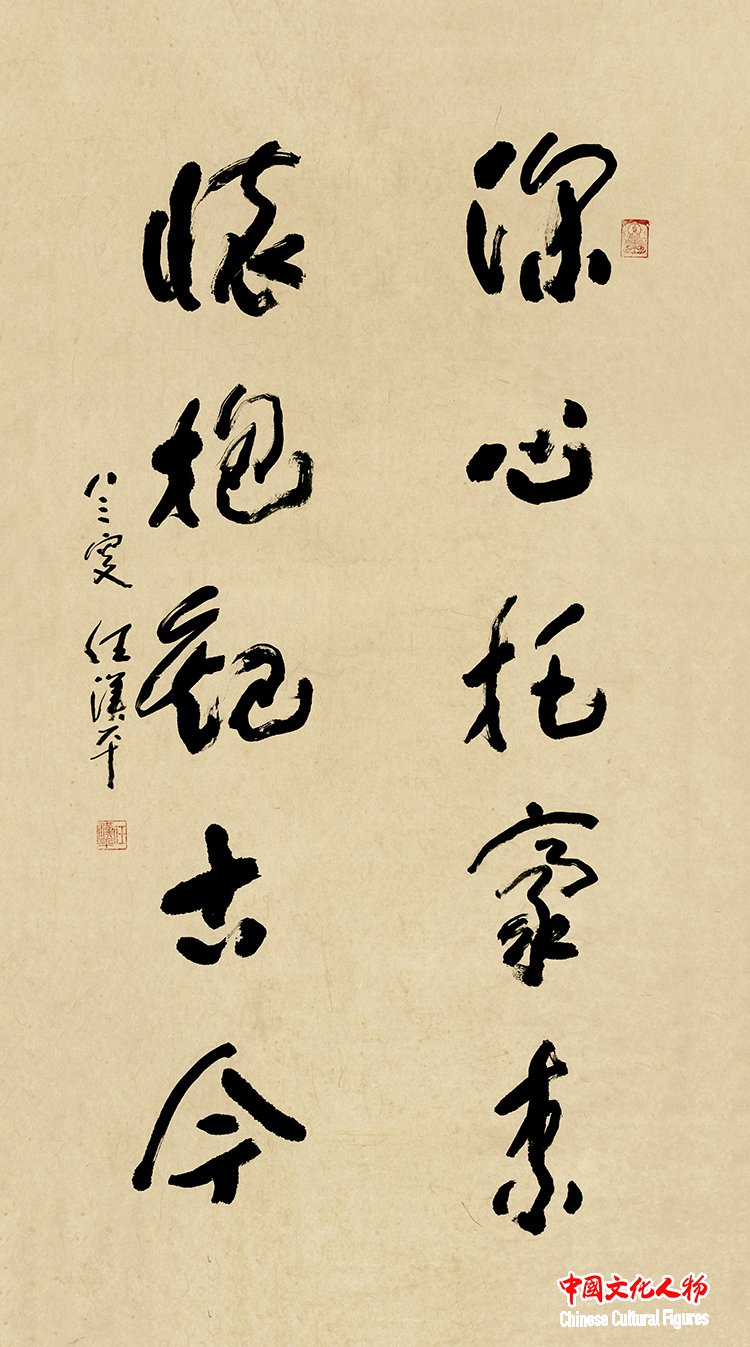 深心托豪素
懷抱觀古今
八三叟 任漢平
中國文化人物
Chinese Cultural Figures